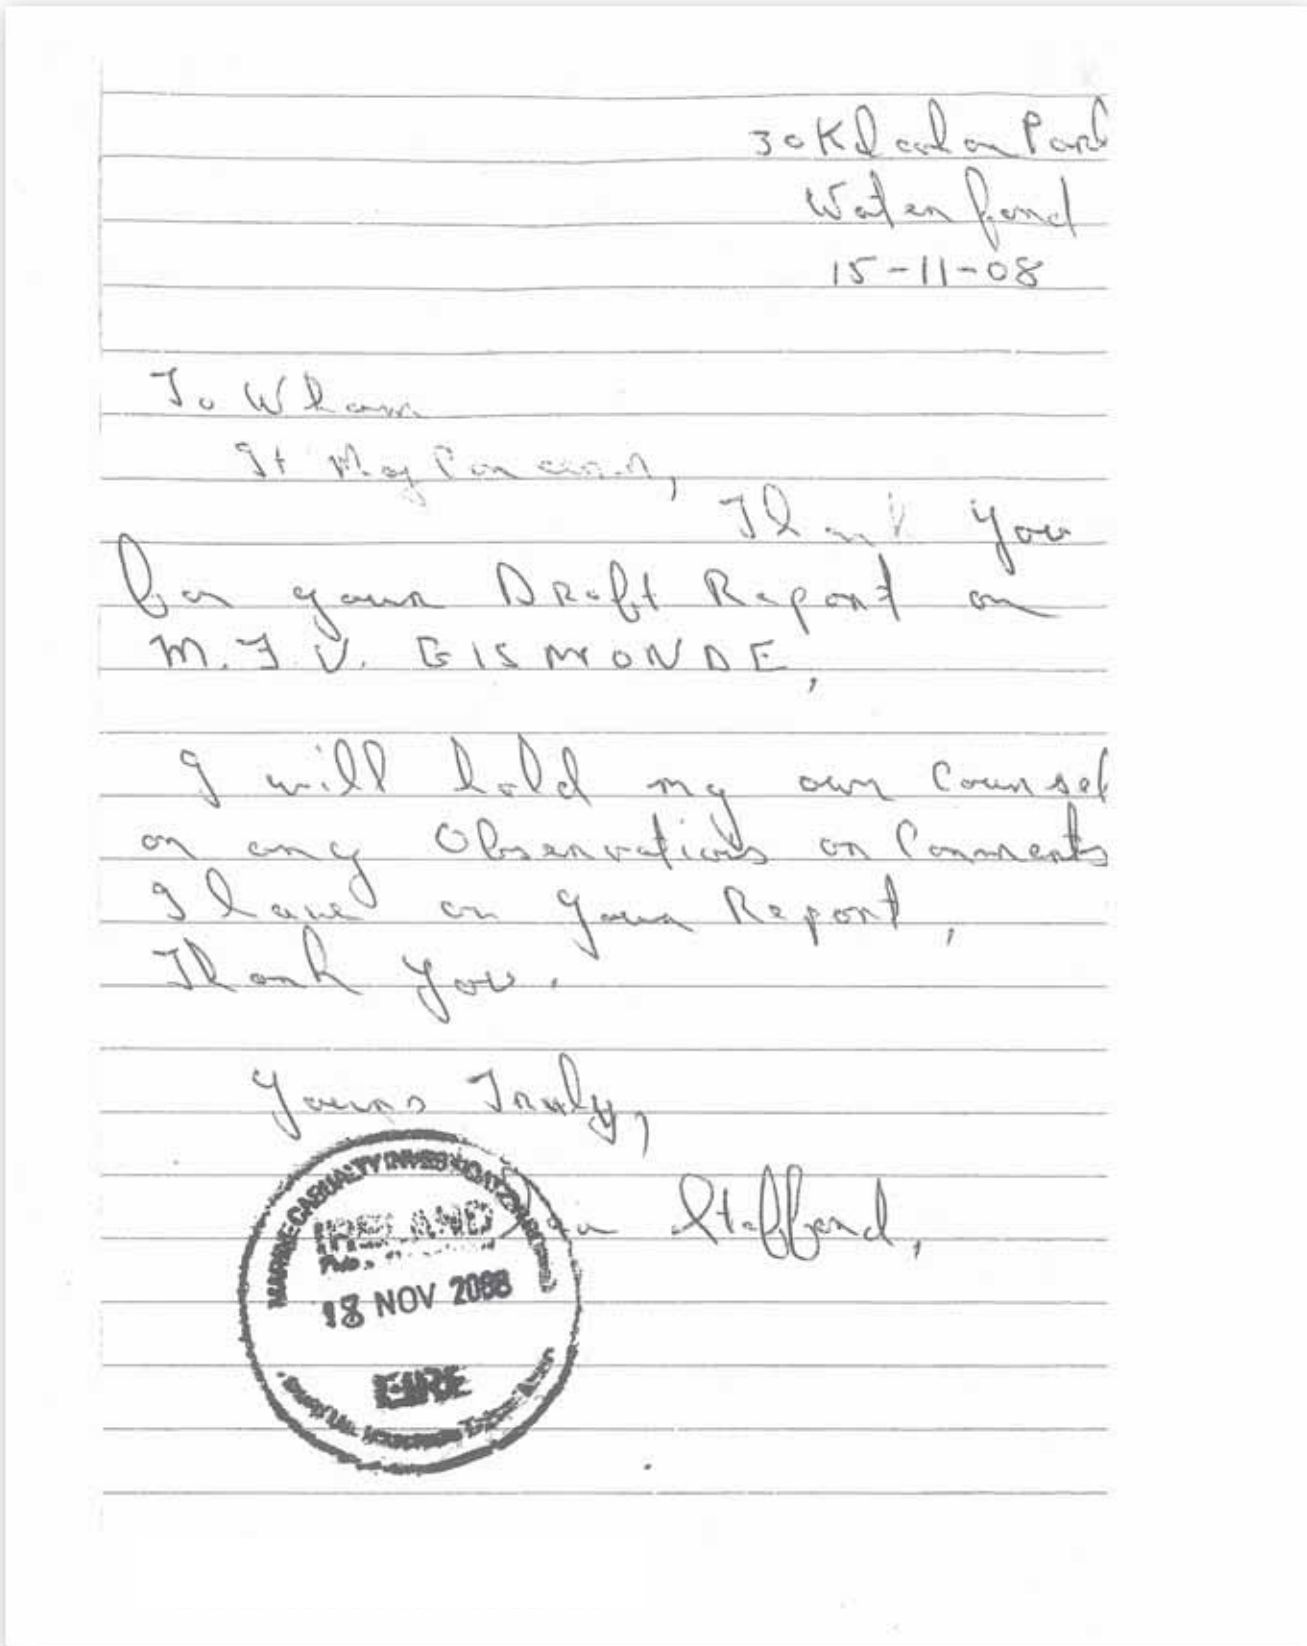 30 Kilcohan Park
Waterford
15-11-08
To Whom
It May Concern,
Thank you
for your Draft Report on
M.F.V. GISMONDE,
I will hold my own Counsel
on any Observations or Comments
I have on your Report,
Thank you.
Yours Truly,
Stafford,
MARINE CASUALTY INVESTIGATION BOARD
IRELAND
18 NOV 2008
EIRE